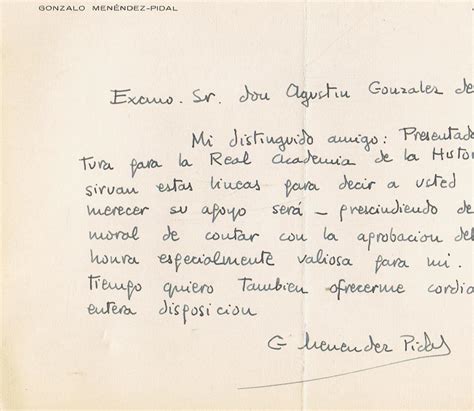 GONZALO MENÉNDEZ-PIDAL
Excmo. Sr. don Agustin Gonzalez de
Mi distinguido amigo: Presentado
tura para la Real Academia de la Histor
sirvan estas lineas para decir a usted
merecer su apoyo será – prescindiendo de
moral de contar con la aprobacion del
honra especialmente valiosa para mi.
tiempo quiero tambien ofrecerme cordia
entera disposicion
G Menendez Pidal